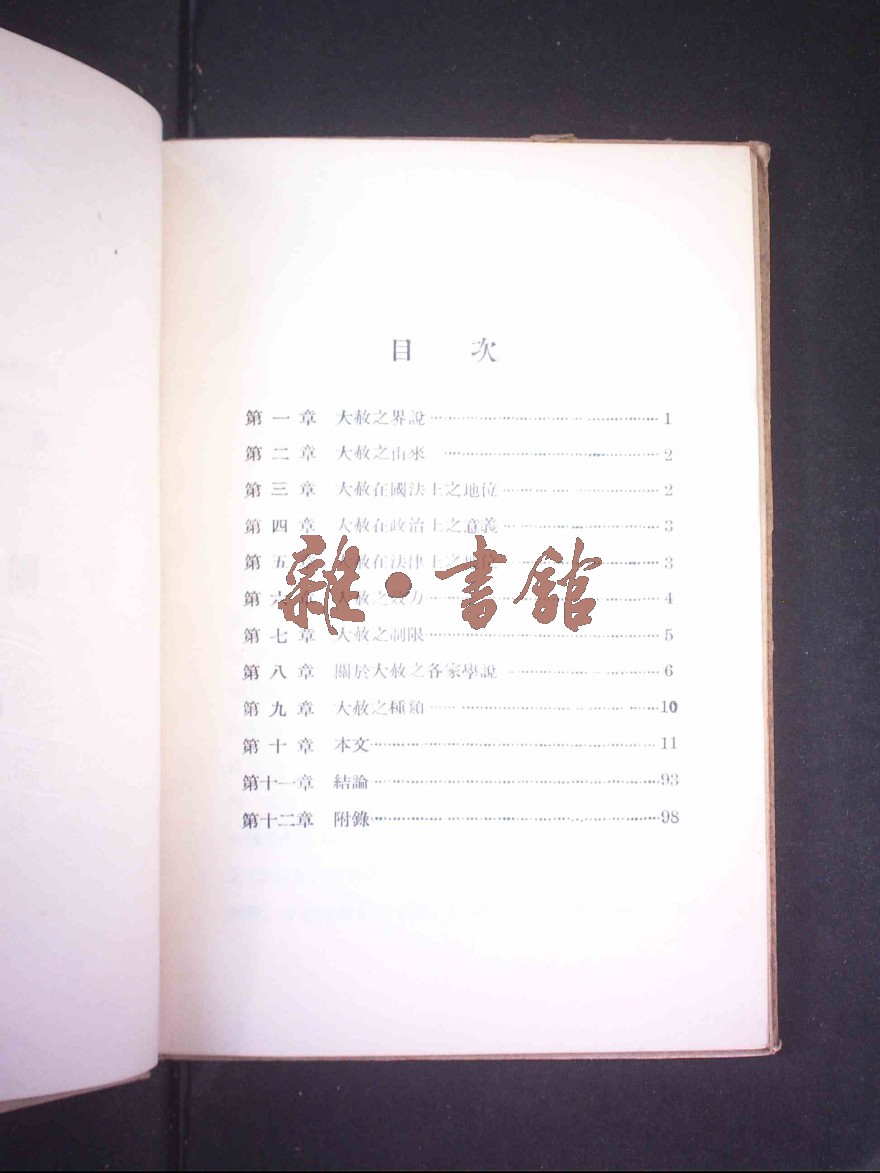 目 次
第一章 大赦之界說 1
第二章 大赦之由來 2
第三章 大赦在國法上之地位 2
第四章 大赦在政治上之意義 3
第五章 大赦在法律上之地位 3
第六章 大赦之效力 4
第七章 大赦之制限 5
第八章 關於大赦之各家學說 6
第九章 大赦之種類 10
第十章 本文 11
第十一章 結論 93
第十二章 附錄 98
雜·書館